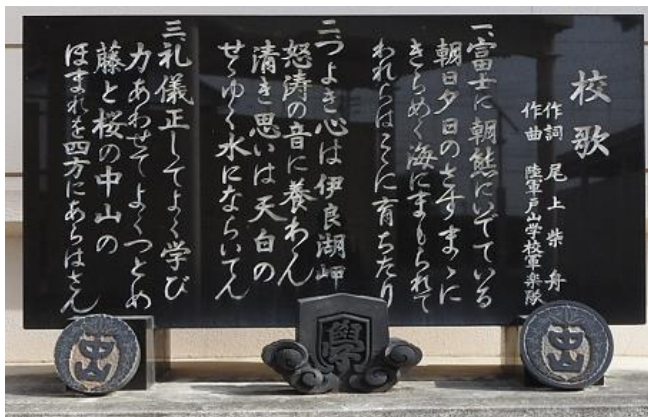 校歌
作詞 尾上柴舟
作曲 陸軍戸山学校軍楽隊
一、富士に朝熊にいでている
朝日夕日のさすまゝに
きらめく海にまもられて
われらはこゝに育ちたり
二、つよき心は伊良湖岬
怒涛の音に養わん
清き思いは天白の
せゝゆく水にならいてん
三、礼儀正してよく学び
力あわせてよくつとめ
藤と桜の中山の
ほまれを四方にあらはさん
中山
學
中山